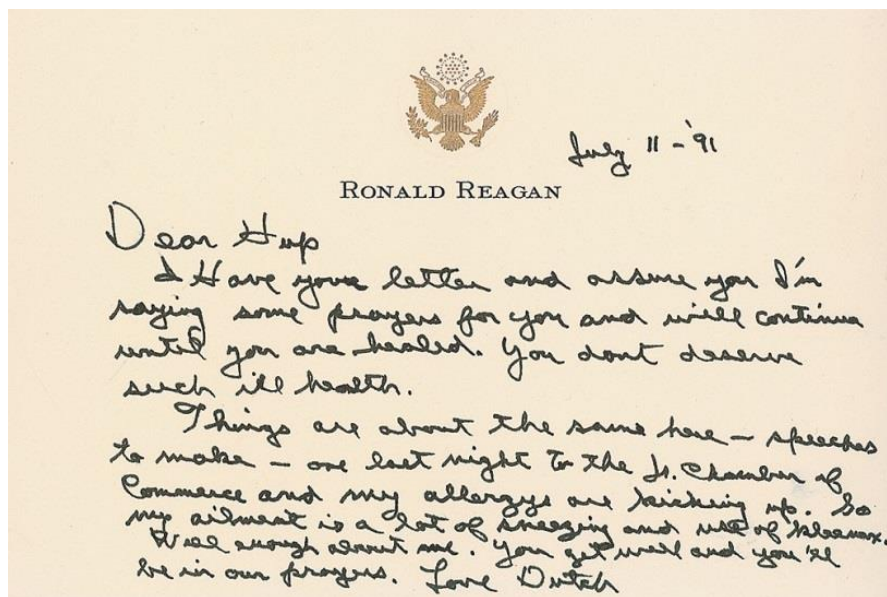 July 11 - '91
RONALD REAGAN
Dear Hup
I Have your letter and assure you I'm
saying some prayers for you and will continue
until you are healed. You dont deserve
such ill health.
Things are about the same here – speeches
to make – one last night to the Jr. Chamber of
Commerce and my allergys are kicking up. So
my ailment is a lot of sneezing and use of kleenex.
Well enough about me. You get well and you'll
be in our prayers. Love Dutch